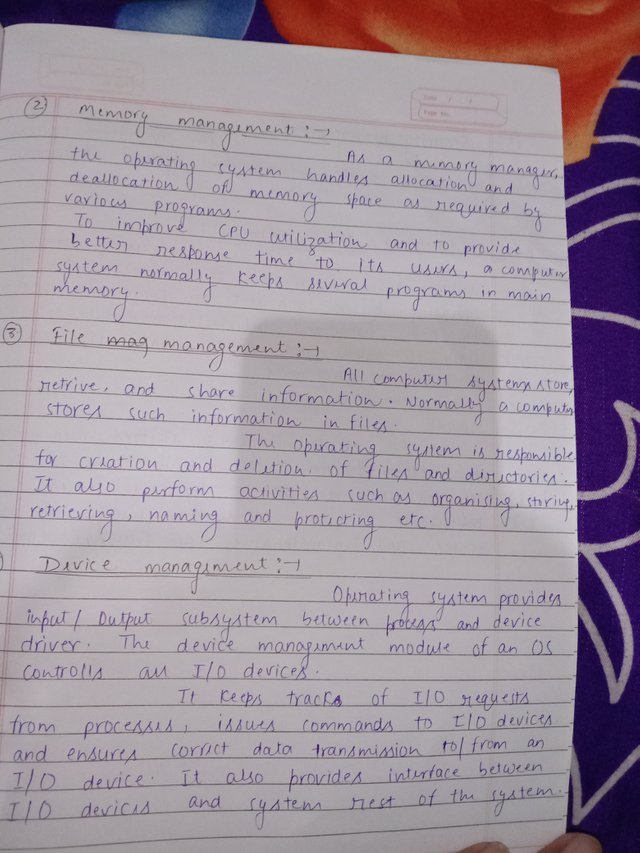 Date / /
Page No.
② Memory management :→
As a memory manager,
the operating system handles allocation and
deallocation of memory space as required by
various programs.
To improve CPU utilization and to provide
better response time to its users, a computer
system normally keeps several programs in main
memory.
③ File mag management :→
All computer systems store,
retrive, and share information. Normally a computer
stores such information in files.
The operating system is responsible
for creation and deletion of files and directories.
It also perform activities such as organising, storing,
retrieving, naming and protecting etc.
Device management :→
Operating system provides
input/ Output subsystem between process and device
driver. The device management module of an OS
controlls all I/O devices.
It keeps tracks of I/O requests
from processes, issues commands to I/O devices
and ensures correct data transmission to/from an
I/O device. It also provides interface between
I/O devices and system rest of the system.